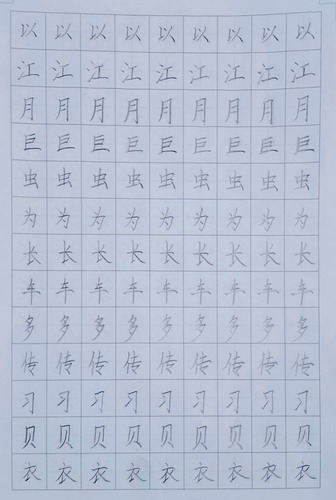 以以以以以以以以以
江江江江江江江江江
月月月月月月月月月
巨巨巨巨巨巨巨巨巨
虫虫虫虫虫虫虫虫虫
为为为为为为为为为
长长长长长长长长长
车车车车车车车车车
多多多多多多多多多
传传传传传传传传传
习习习习习习习习习
贝贝贝贝贝贝贝贝贝
衣衣衣衣衣衣衣衣衣